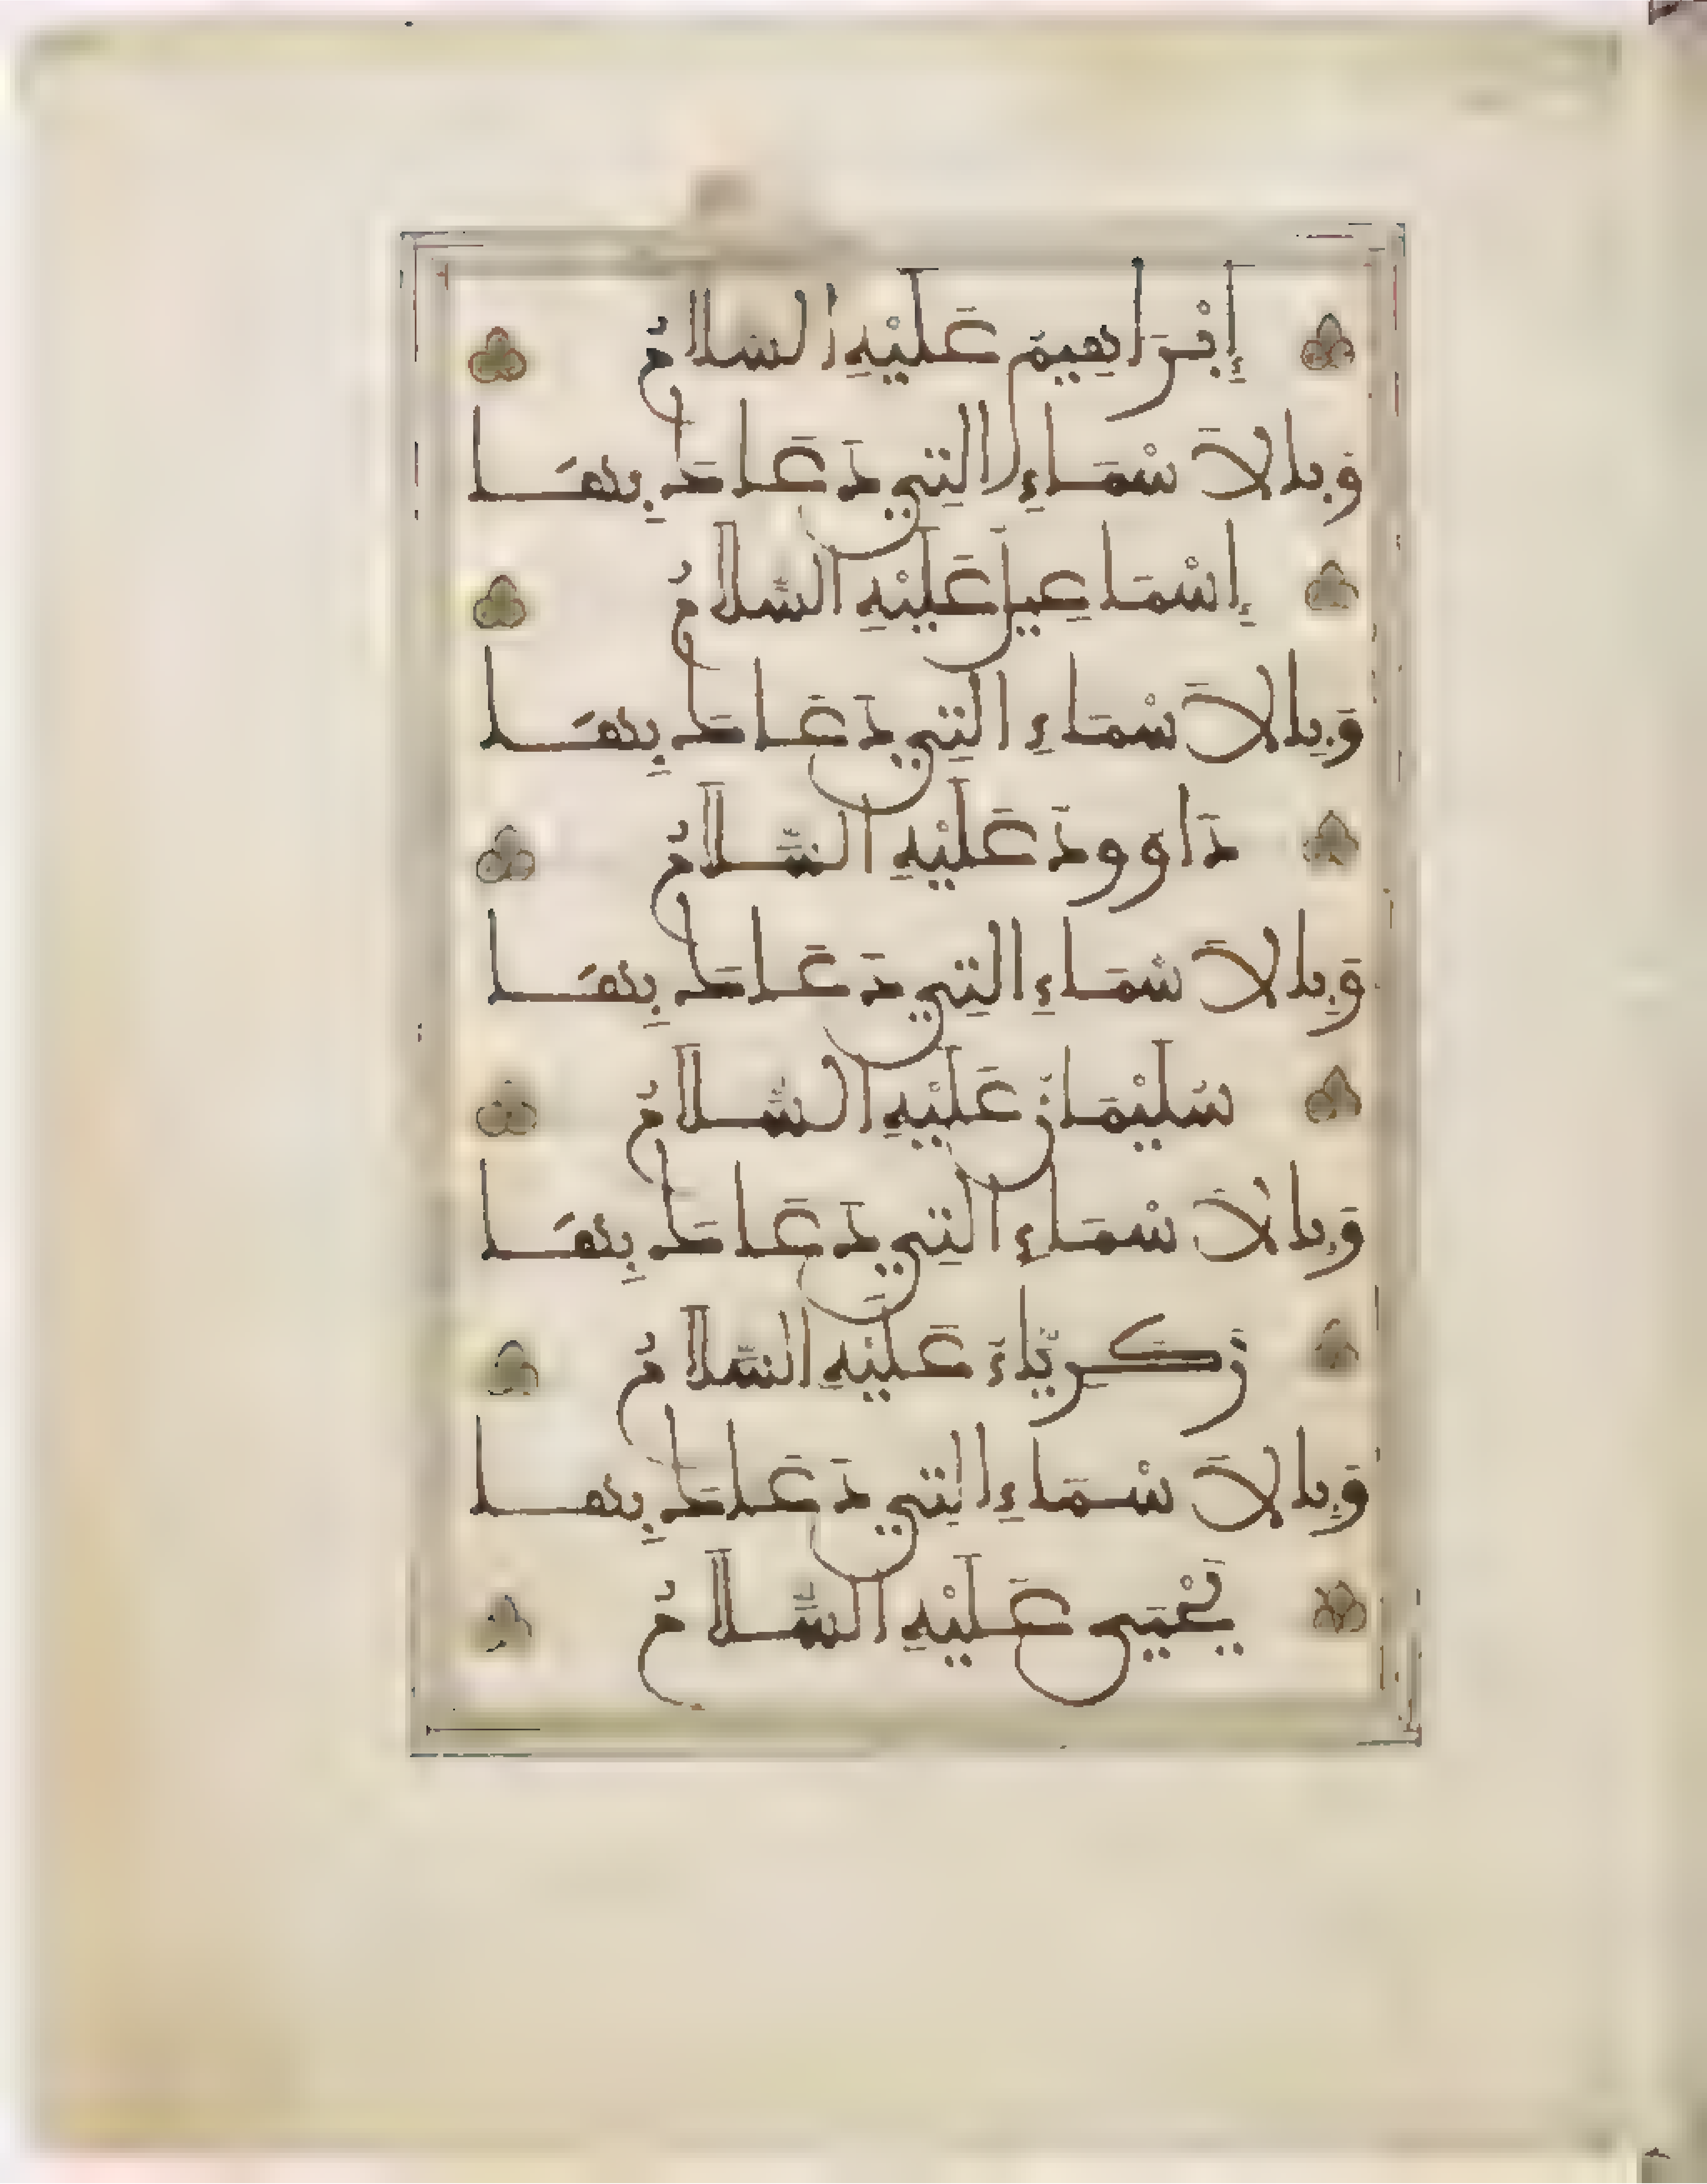 إِبْرَاهِيمَ عَلَيْهِ السَّلَامُ
وَبِالَاسْمَاءِ الَّتِي دَعَاكَ بِهَا
إِسْمَاعِيلُ عَلَيْهِ السَّلَامُ
وَبِالَاسْمَاءِ الَّتِي دَعَاكَ بِهَا
دَاوودَ عَلَيْهِ السَّلَامُ
وَبِالَاسْمَاءِ الَّتِي دَعَاكَ بِهَا
سُلَيْمَانُ عَلَيْهِ السَّلَامُ
وَبِالَاسْمَاءِ الَّتِي دَعَاكَ بِهَا
زَكَرِيَّاءَ عَلَيْهِ السَّلَامُ
وَبِالَاسْمَاءِ الَّتِي دَعَاكَ بِهَا
يَحْيَى عَلَيْهِ السَّلَامُ